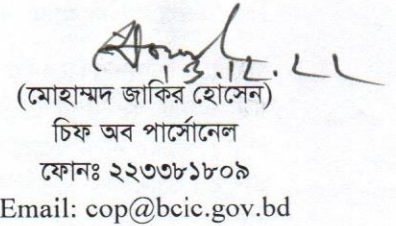 ১৩.১২.২২
(মোহাম্মদ জাকির হোসেন)
চিফ অব পার্সোনেল
ফোনঃ ২২৩৩৮১৮০৯
Email: cop@bcic.gov.bd